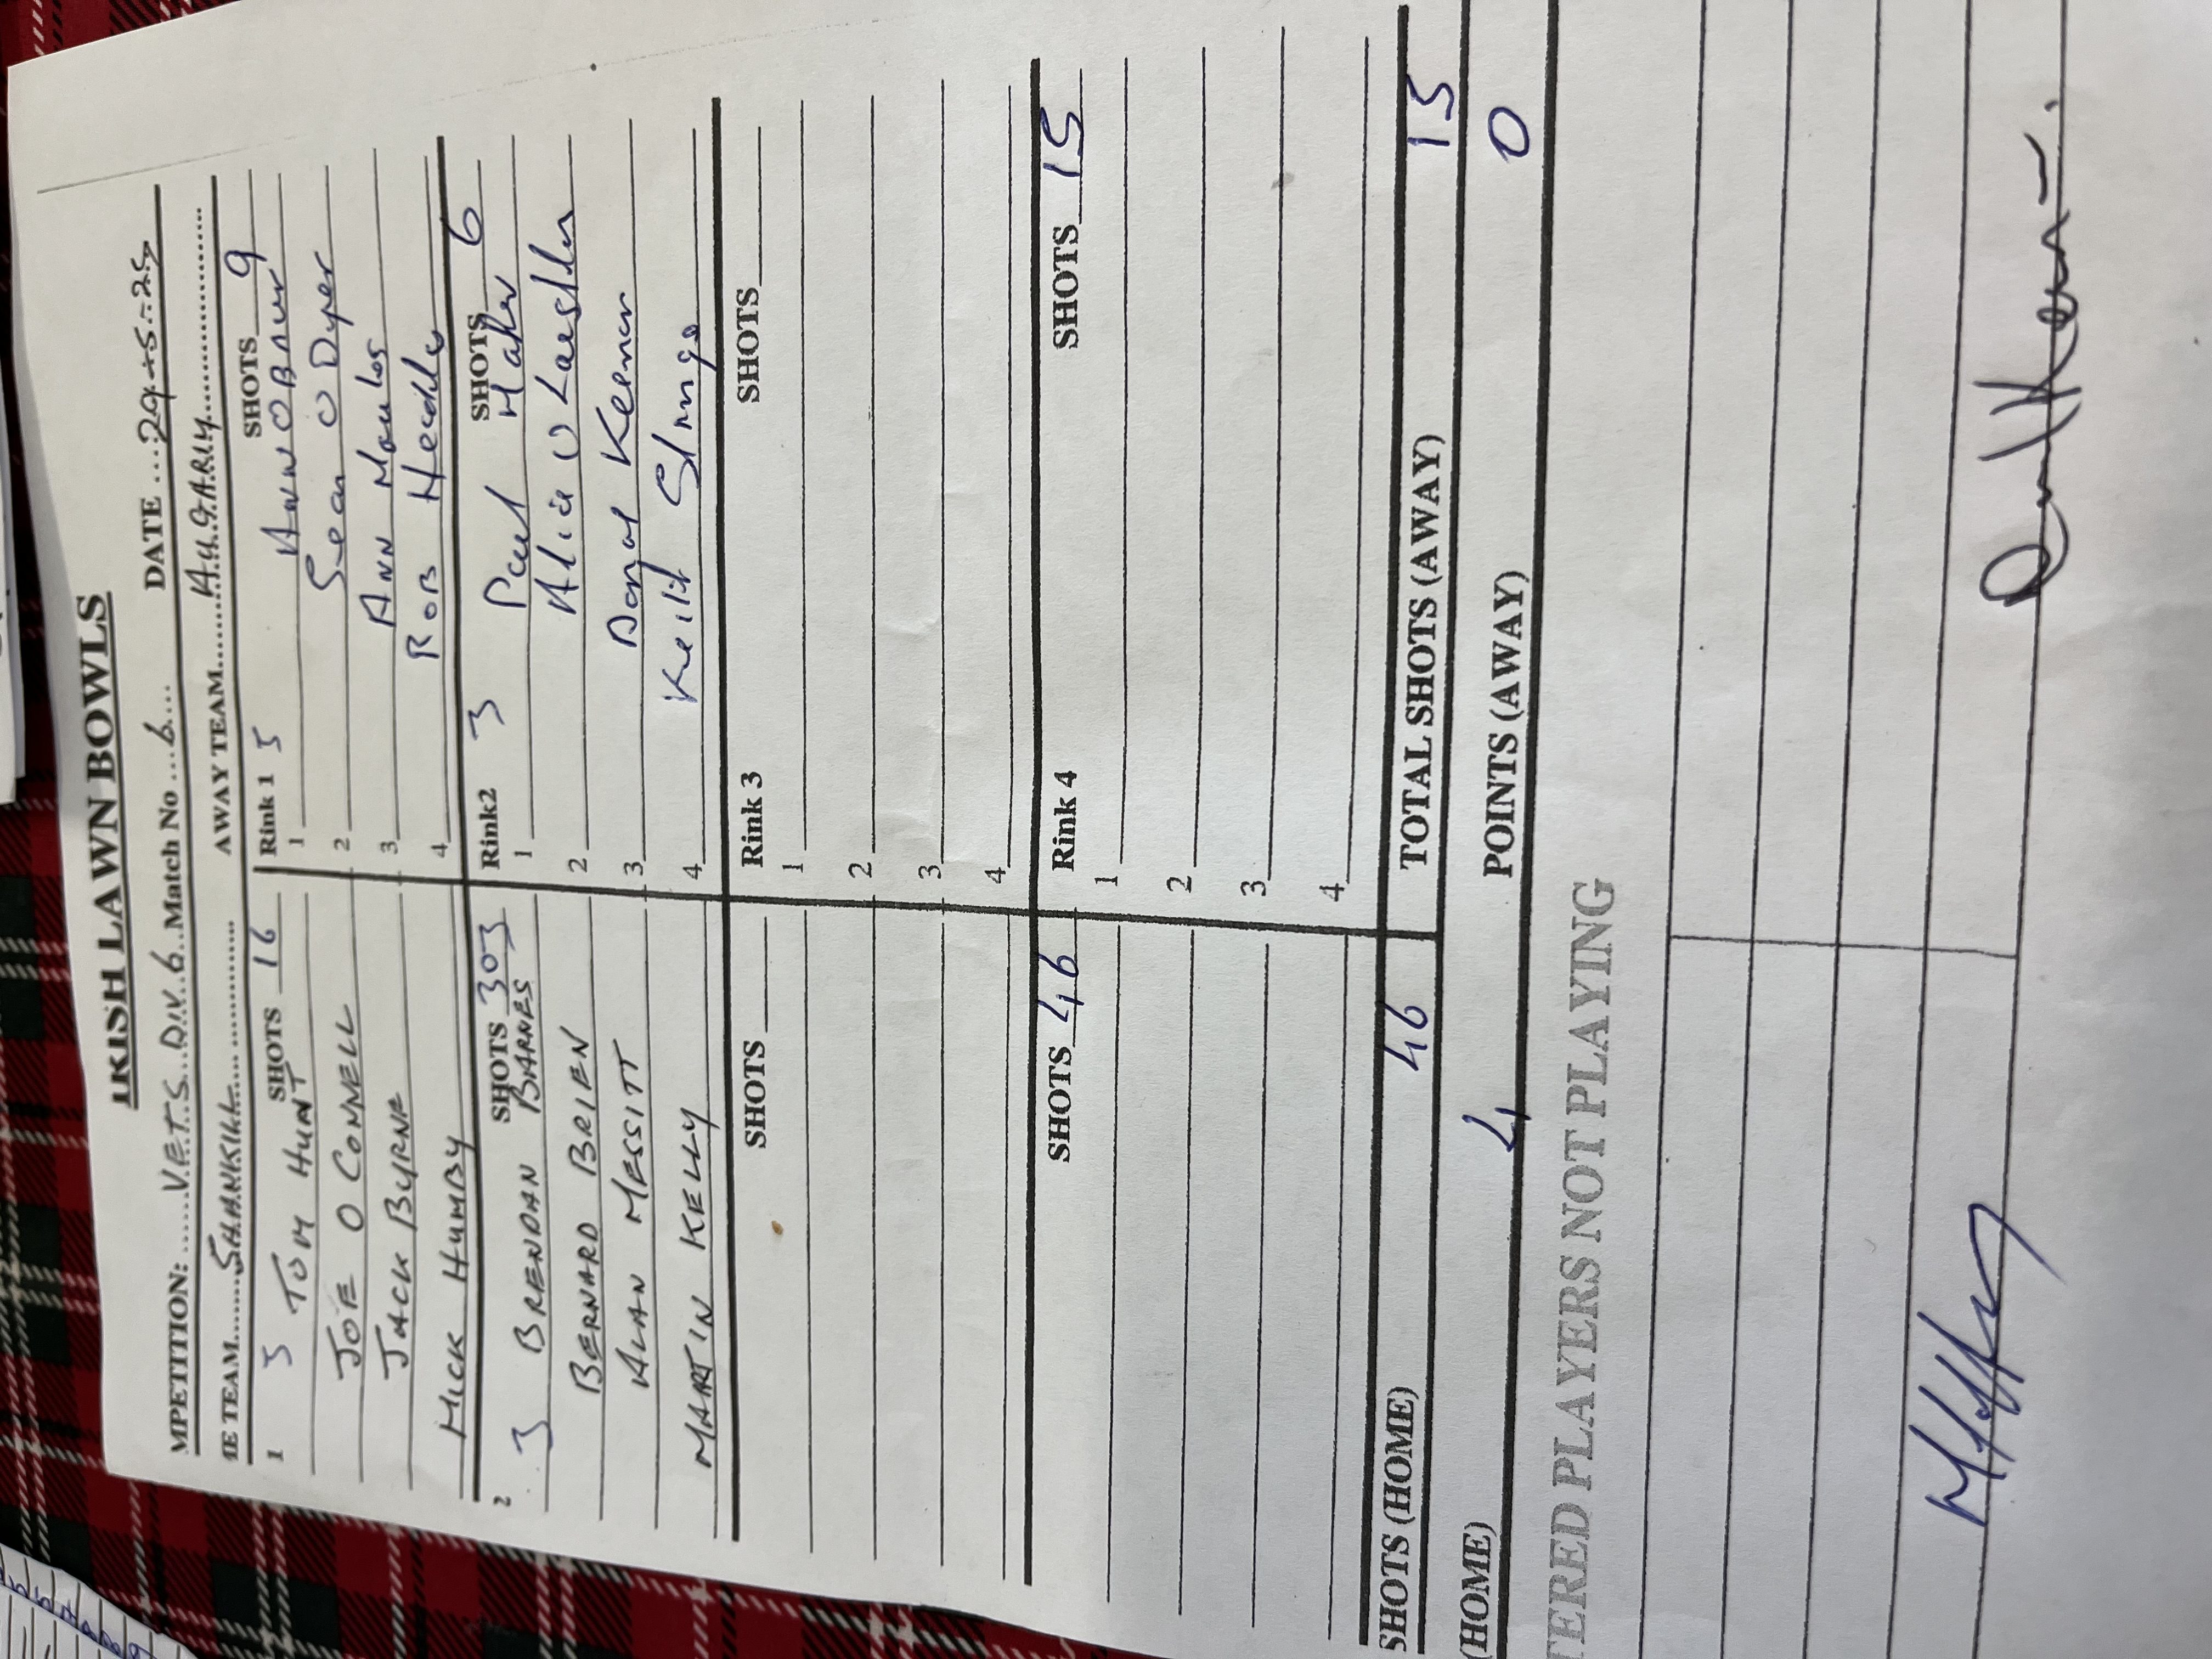 IRISH LAWN BOWLS
MPETITION: ......V.E.T.S..DIV.6..Match No ...6.... DATE ....29-5-25
IE TEAM.........SHANKILL.................. AWAY TEAM.........
1 3 SHOTS 16 Rink 1 5 SHOTS 9
TOM HUNT 1
JOE O CONNELL 2 Sean O Dyer
JACK BYRNE 3 ANN
MICK HUMBY 4 ROB
2 3 SHOTS 30 3 Rink2 3 SHOTS 6
BRENDAN BARNES 1 Paul Maher
BERNARD BRIEN 2
ALAN MESSITT 3 Keenan
MARTIN KELLY 4 Keith
SHOTS Rink 3 SHOTS
1
2
3
4
SHOTS 46 Rink 4 SHOTS 15
1
2
3
4
SHOTS (HOME) 46 TOTAL SHOTS (AWAY) 15
(HOME) 4 POINTS (AWAY) 0
TERED PLAYERS NOT PLAYING